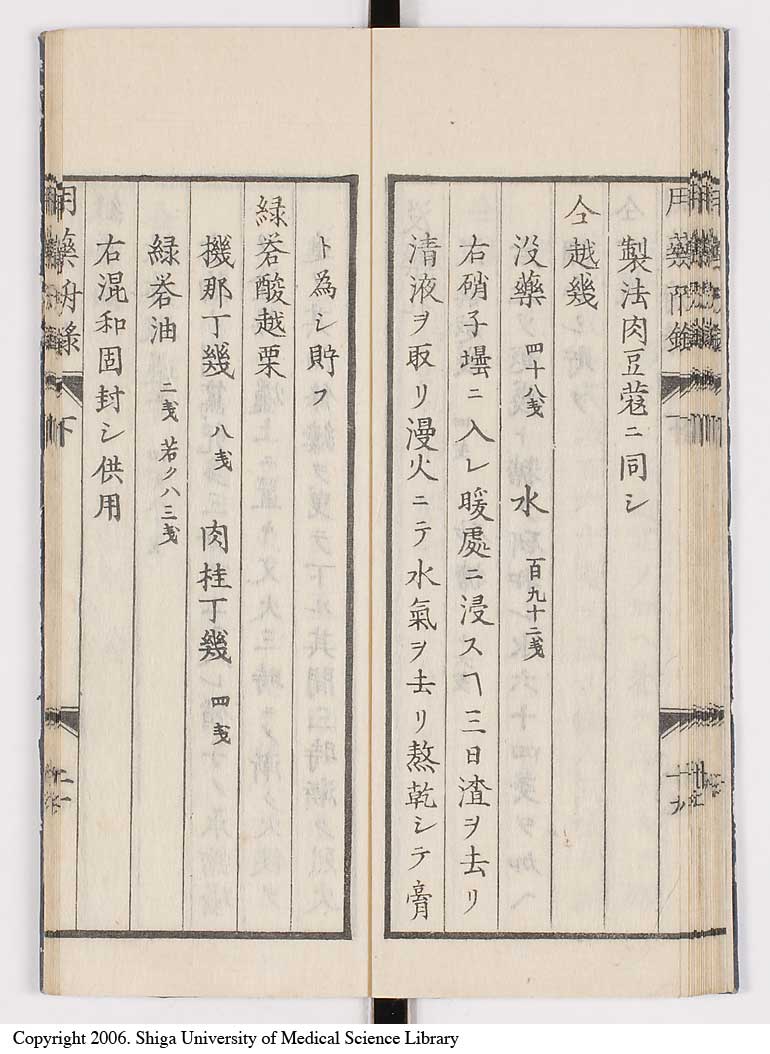 製法肉豆蔲ニ同シ
仝越幾
没藥 四十八戔 水 百九十二戔
右硝子壜ニ入レ暖處ニ浸スヿ三日渣ヲ去リ
清液ヲ取リ漫火ニテ水氣ヲ去リ熬乾シテ膏
ト為シ貯フ
緑礬酸越栗
機那丁幾 八戔 肉桂丁幾 四戔
緑礬油 二戔 若クハ三戔
右混和固封シ供用
Copyright 2006. Shiga University of Medical Science Library